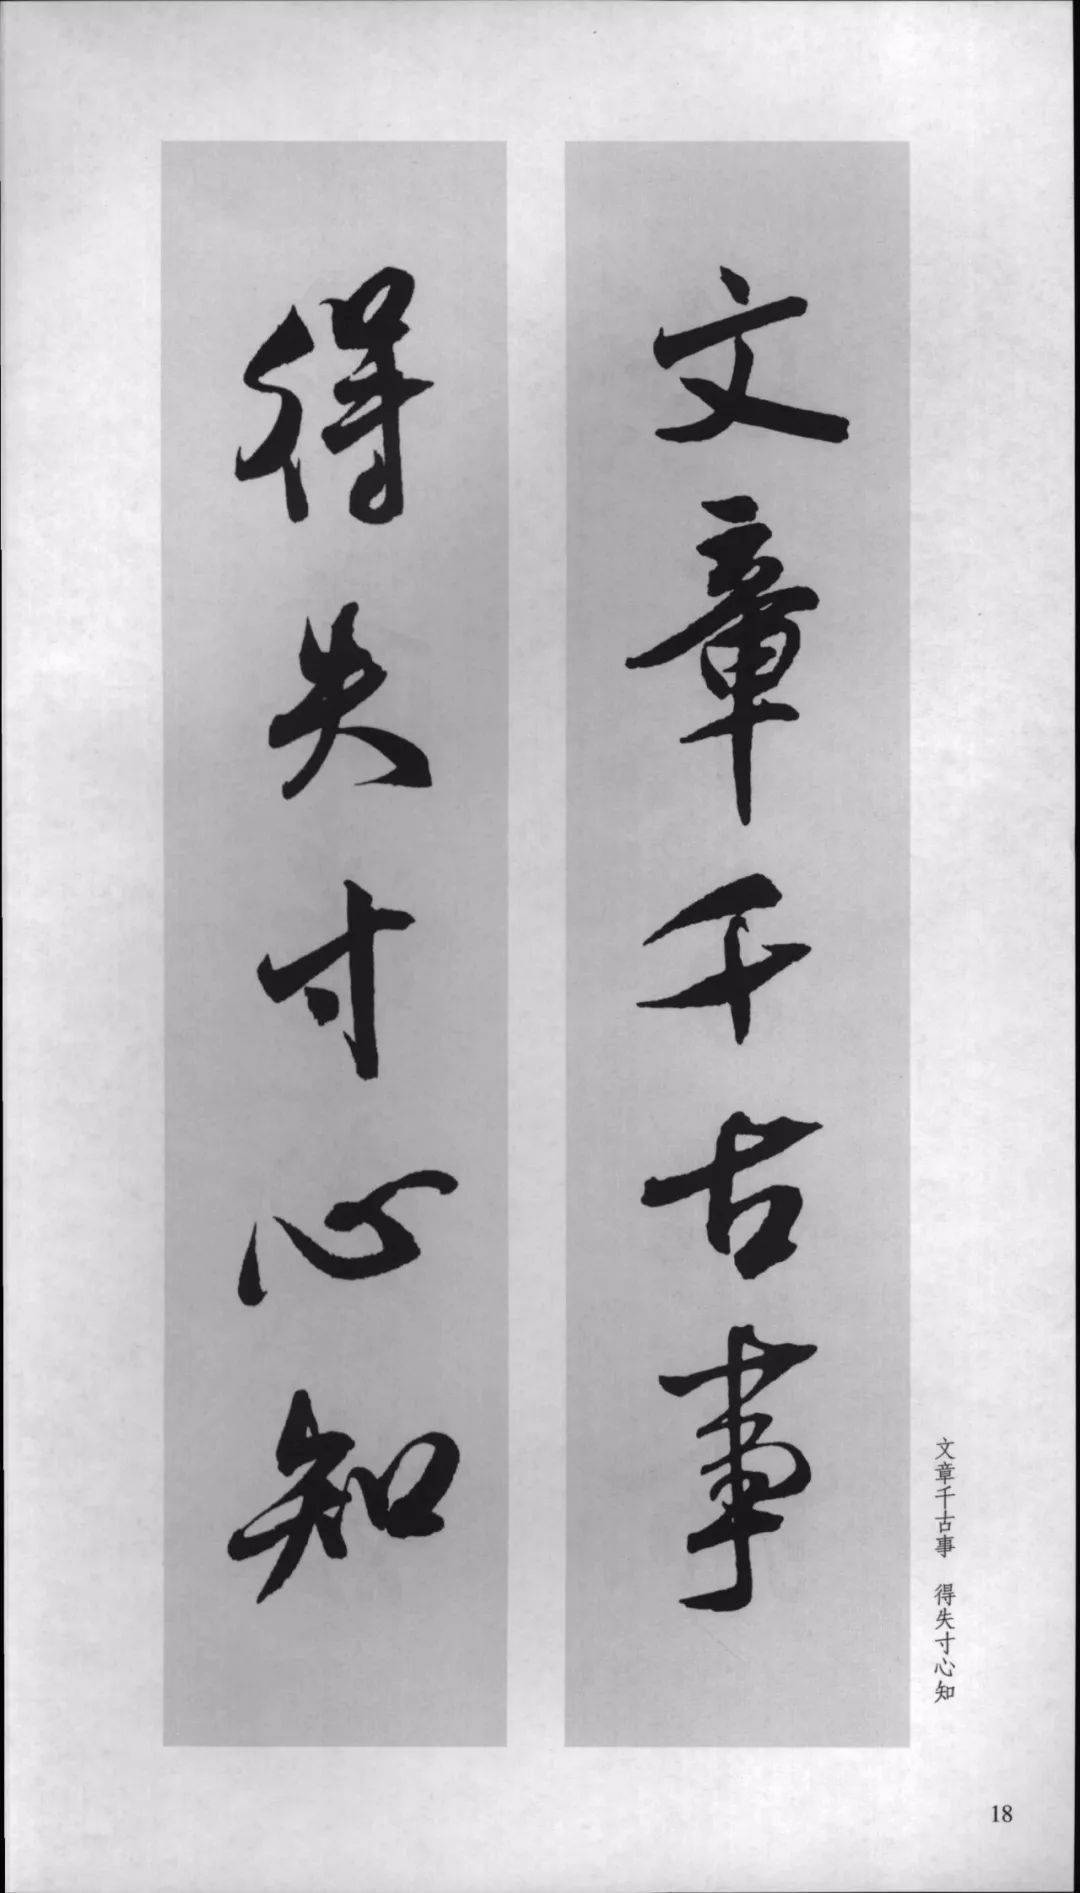 文章千古事
得失寸心知
文章千古事　得失寸心知
18